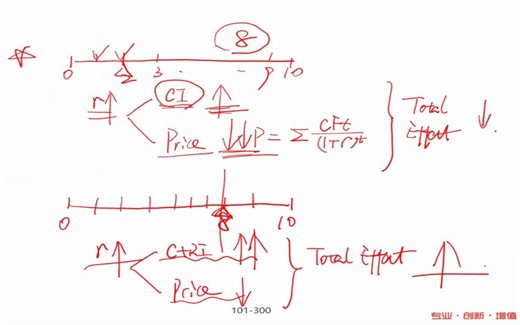 8
0 2 3 9 10
r↑ CI ↑
Price ↓↓ P = Σ CFt / (1+r)^t
Total Effect ↓
0 8 10
r↑ C+RI ↑↑
Price ↓
Total Effect ↑
101-300
专业·创新·增值